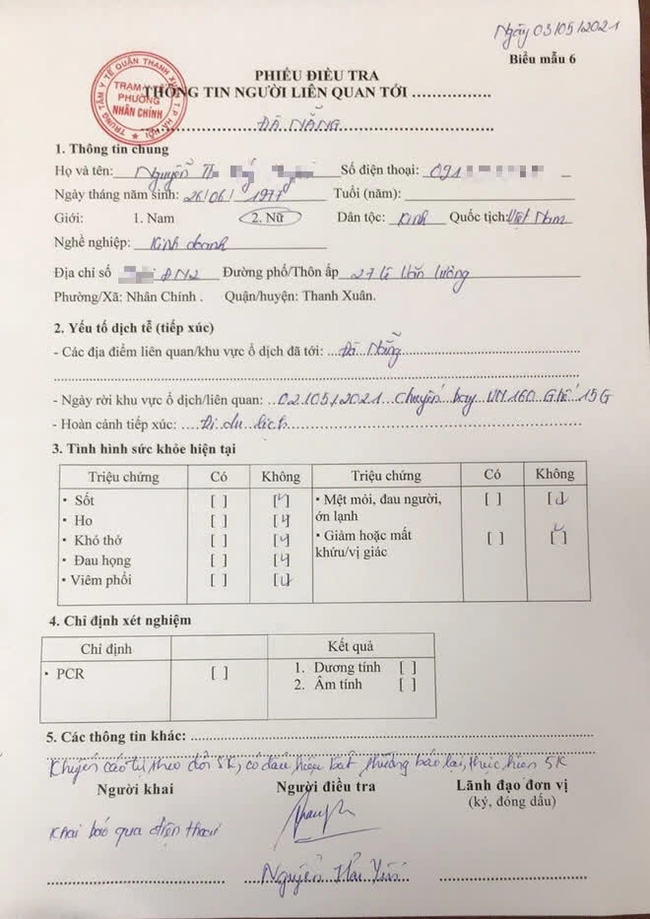 Ngày 03/05/2021
Biểu mẫu 6
PHIẾU ĐIỀU TRA
THÔNG TIN NGƯỜI LIÊN QUAN TỚI ................
ĐÀ NẴNG
TRUNG TÂM Y TẾ QUẬN THANH XUÂN T.P HÀ NỘI
TRẠM Y TẾ
PHƯỜNG
NHÂN CHÍNH
1. Thông tin chung
Họ và tên: Nguyễn Th Số điện thoại: 091
Ngày tháng năm sinh: 26/06/1977 Tuổi (năm):
Giới: 1. Nam 2. Nữ Dân tộc: Kinh Quốc tịch: Việt Nam
Nghề nghiệp: Kinh doanh
Địa chỉ số ĐN2 Đường phố/Thôn ấp 27 Lê Văn Lương
Phường/Xã: Nhân Chính . Quận/huyện: Thanh Xuân.
2. Yếu tố dịch tễ (tiếp xúc)
- Các địa điểm liên quan/khu vực ổ dịch đã tới: Đà Nẵng
- Ngày rời khu vực ổ dịch/liên quan: 02/05/2021 chuyến bay VN160 Ghế 15G
- Hoàn cảnh tiếp xúc: Đi du lịch
3. Tình hình sức khỏe hiện tại
Triệu chứng Có Không Triệu chứng Có Không
• Sốt [ ] [✓] • Mệt mỏi, đau người, [ ] [✓]
• Ho [ ] [✓] ớn lạnh
• Khó thở [ ] [✓] • Giảm hoặc mất [ ] [✓]
• Đau họng [ ] [✓] khứu/vị giác
• Viêm phổi [ ] [✓]
4. Chỉ định xét nghiệm
Chỉ định Kết quả
• PCR [ ] 1. Dương tính [ ]
2. Âm tính [ ]
5. Các thông tin khác:
Khuyến cáo tự theo dõi SK, có dấu hiệu bất thường báo lại, thực hiện 5K
Người khai Người điều tra Lãnh đạo đơn vị
(ký, đóng dấu)
Khai báo qua điện thoại
Nguyễn Hải Yến